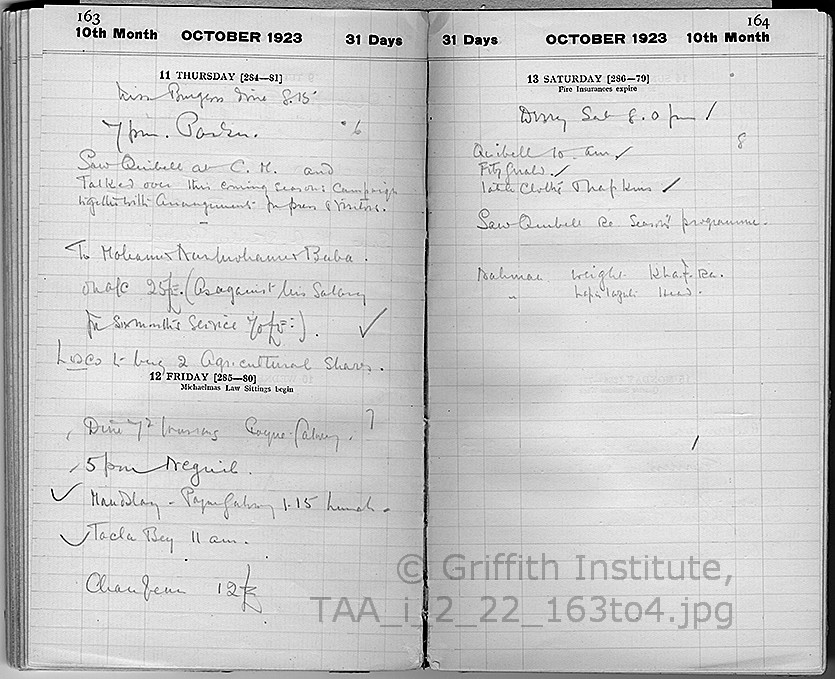 163
10th Month OCTOBER 1923 31 Days
11 THURSDAY [284—81]
Miss Burgess dine 8.15
7 pm. Parker.
6
Saw Quibell at C. M. and
talked over this coming seasons campaign
together with arrangements for press & visitors.
To Mohamed Baba.
on a/c 25 £E. (as against his Salary
for six months service
to buy 2 Agricultural Shares.
12 FRIDAY [285—80]
Michaelmas Law Sittings begin
7
Dine
5 pm Neguib.
Maudslay - 1-15 lunch.
Tacla Bey 11 am.
12 £E
164
31 Days OCTOBER 1923 10th Month
13 SATURDAY [286—79]
Fire Insurances expire
Sat 8.0 pm
8
Quibell 10 am
Fitzgerald.
Table Cloths & Napkins
Saw Quibell Re Season's programme.
Nahman weight Khaf-Ra.
" Lapis lazuli Head.
© Griffith Institute,
TAA_i_2_22_163to4.jpg